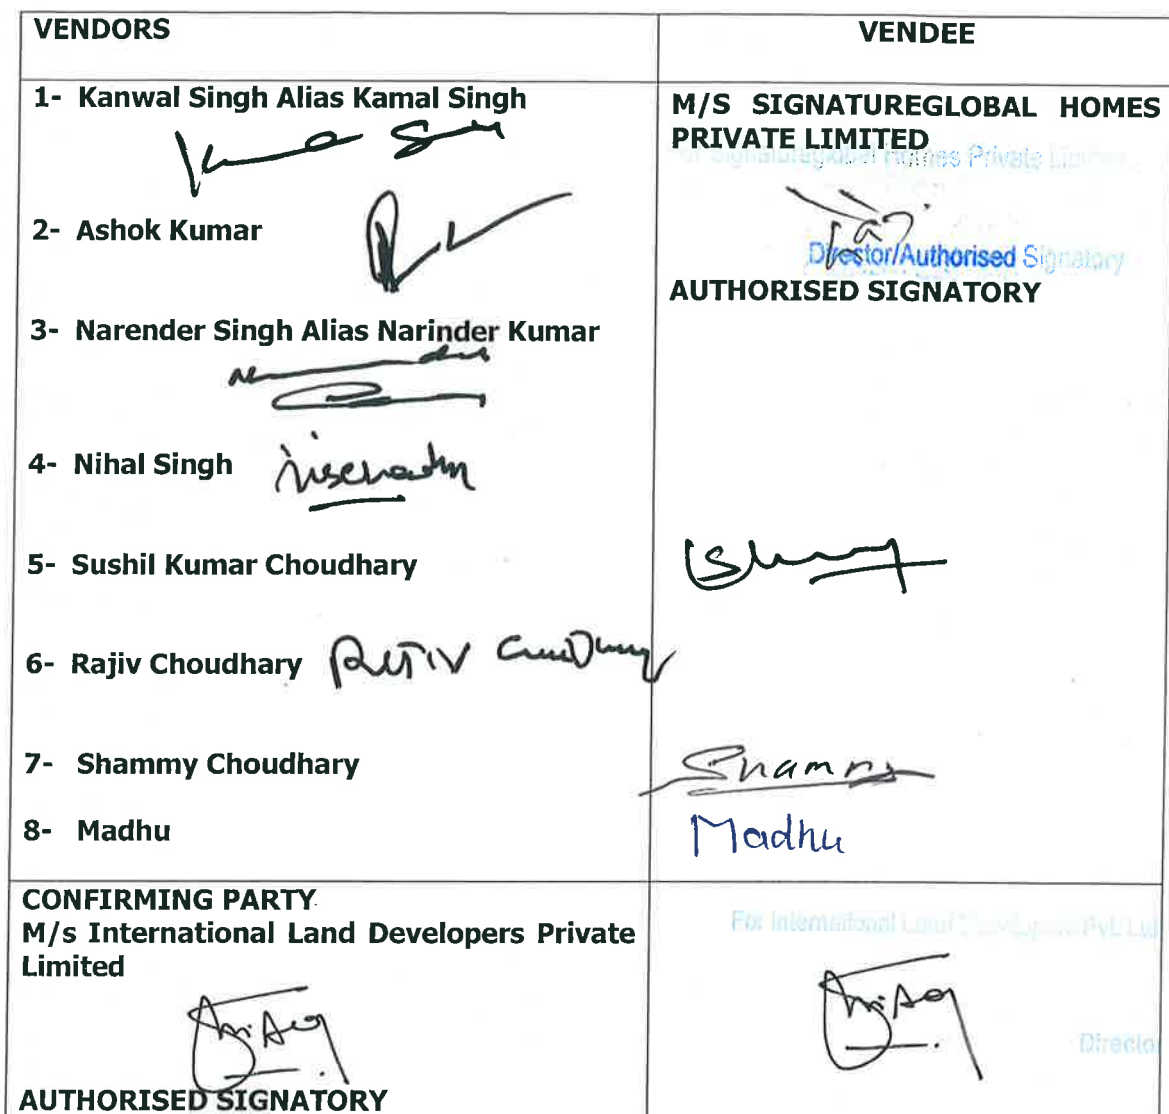 VENDORS
VENDEE
1- Kanwal Singh Alias Kamal Singh
2- Ashok Kumar
3- Narender Singh Alias Narinder Kumar
4- Nihal Singh
5- Sushil Kumar Choudhary
6- Rajiv Choudhary
7- Shammy Choudhary
8- Madhu
M/S SIGNATUREGLOBAL HOMES
PRIVATE LIMITED
For Signatureglobal Homes Private Limited
Director/Authorised Signatory
AUTHORISED SIGNATORY
Shammy
Madhu
CONFIRMING PARTY
M/s International Land Developers Private
Limited
AUTHORISED SIGNATORY
For International Land Developers Pvt. Ltd.
Director